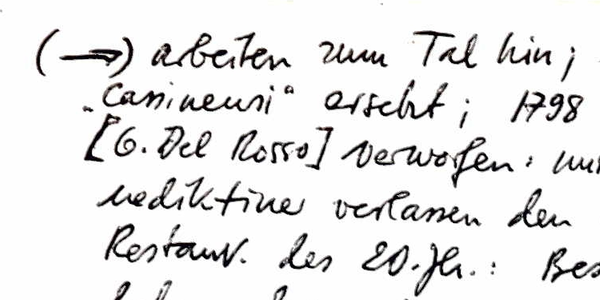 (→) arbeiten zum Tal hin;
„Cassinensi“ ersetzt; 1798
[G. Del Rosso] verworfen: nur
nediktiner verlassen den
Restaur. des 20. Jh.: Bes